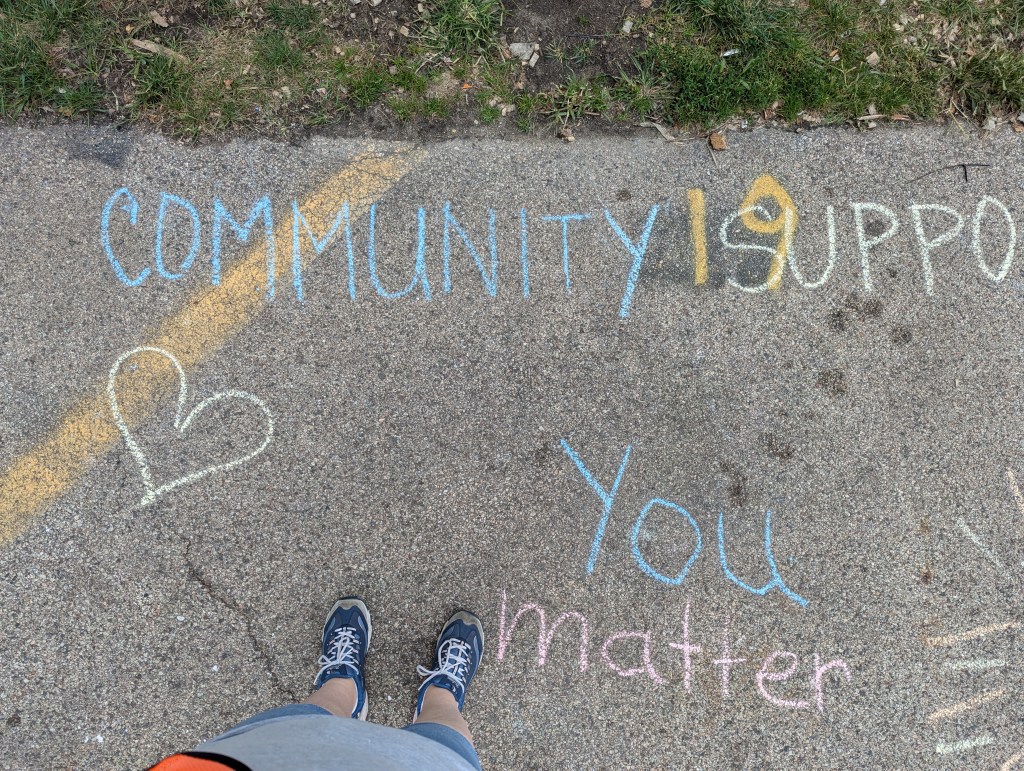 COMMUNITY SUPPO
19
You
matter